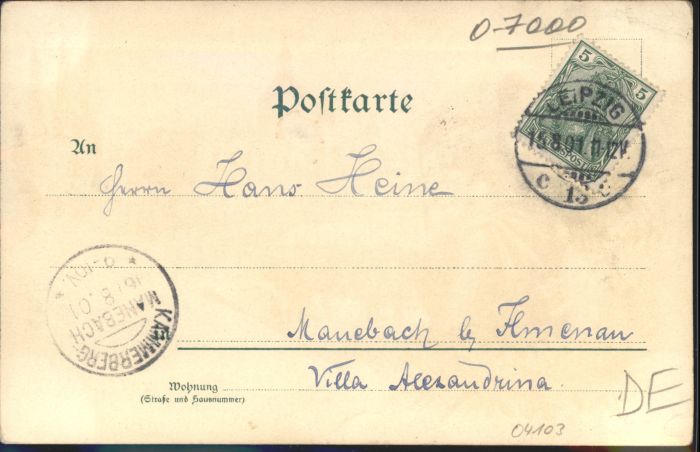 0-7000
5 5
Postkarte
LEIPZIG
15.8.01. 11-12V.
c 13 c
An
Herrn Hans Heine
KAMMERBERG-
MANEBACH
16/8.01
Manebach b/ Ilmenau
Wohnung
(Straße und Hausnummer)
Villa Alexandrina.
DE
04103